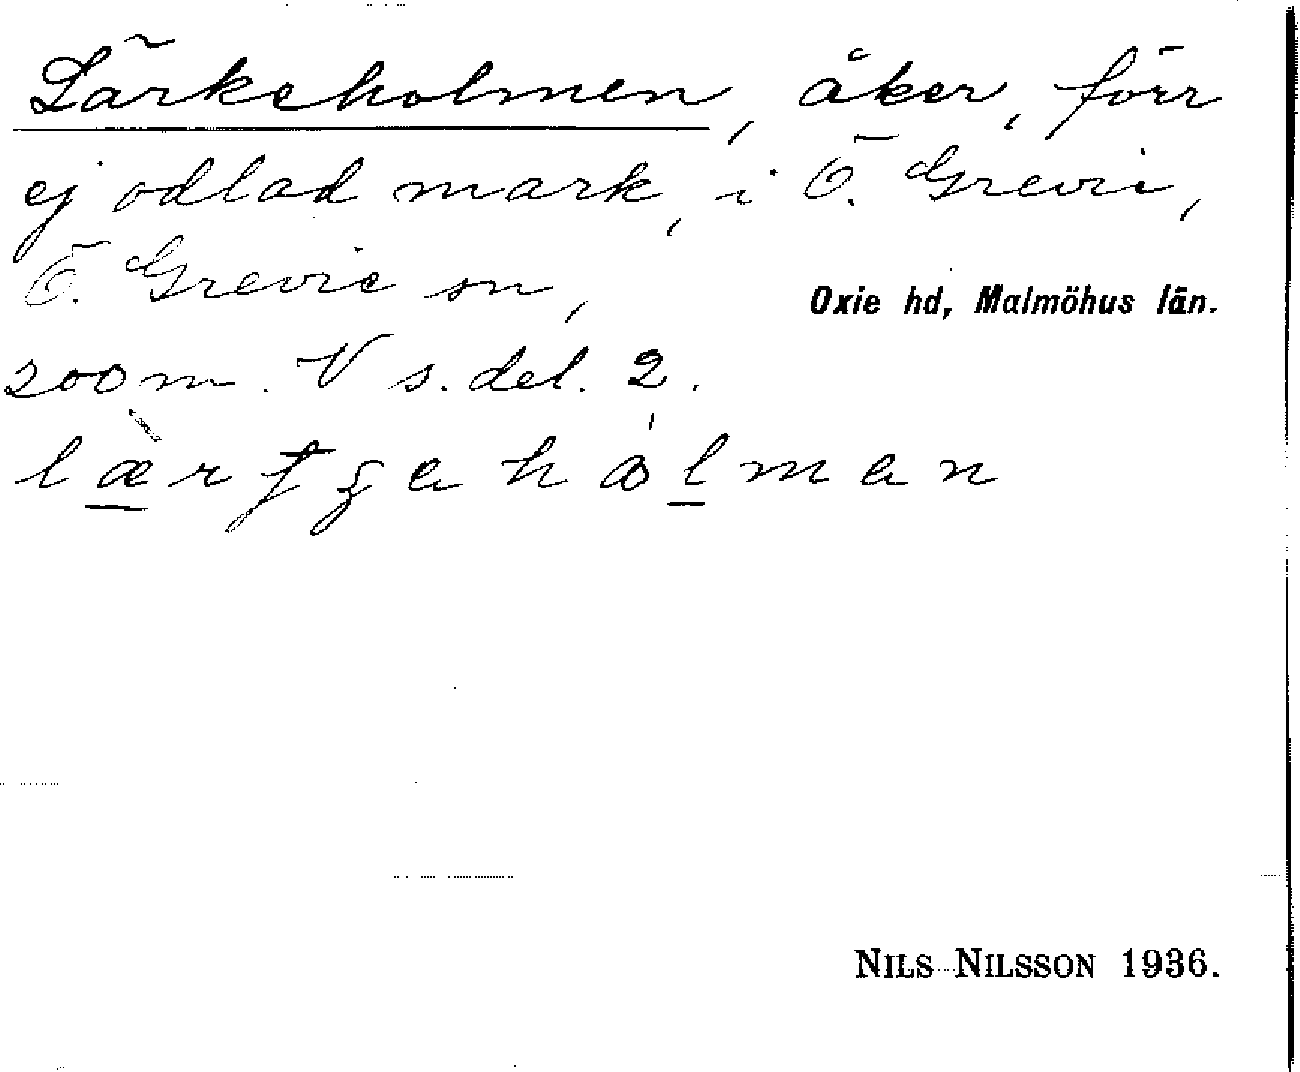 Lärkeholmen, åker, förr
ej odlad mark, i Ö. Grevie,
Ö. Grevie sn, Oxie hd, Malmöhus län.
200 m. V s. del. 2.
NILS NILSSON 1936.